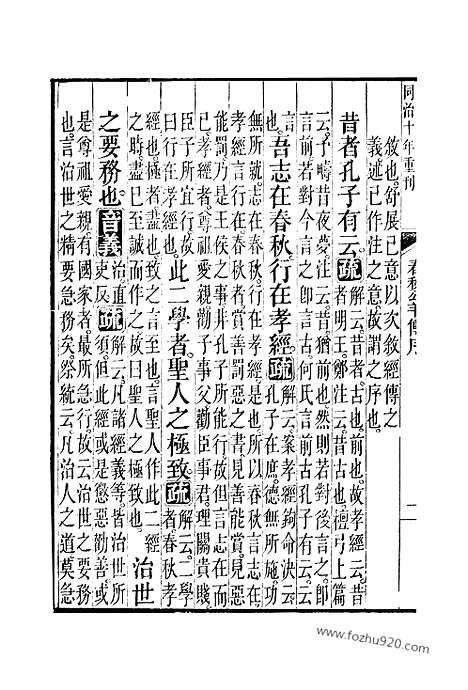 同治十年重刊
春秋公羊傳序
二
敘也舒展已意以次敘經傳之
義述已作注之意故謂之序也
昔者孔子有云疏解云昔者古也前也故孝經云昔
者明王鄭注云昔古也檀弓上篇
云予疇昔夜夢注云昔猶前也然則若對後言之即
言前若對今言之即言古何氏言前古孔子有云云
也吾志在春秋行在孝經疏解云案孝經鉤命決云
孔子在庶德無所施功
無所就志在春秋行在孝經是也所以春秋言志在
孝經言行在春秋者賞善罰惡之書見善能賞見惡
能罰乃是王侯之事非孔子所能行故但言志在而
已孝經者尊祖愛親勸子事父勸臣事君理關貴賤
臣子所宜行故
曰行在孝經也此二學者聖人之極致疏解云二學
者春秋孝
經也極者盡也致之言至也言聖人作此二經
之時盡已至誠而作之故曰聖人之極致也治世
之要務也音義治直
吏反疏解云凡諸經義等皆治世所
須但此經或是懲惡勸善或
是尊祖愛親有國家者最所急行故云治世之要務
也言治世之精要急務矣然統云凡治人之道莫急
www.fozhu920.com